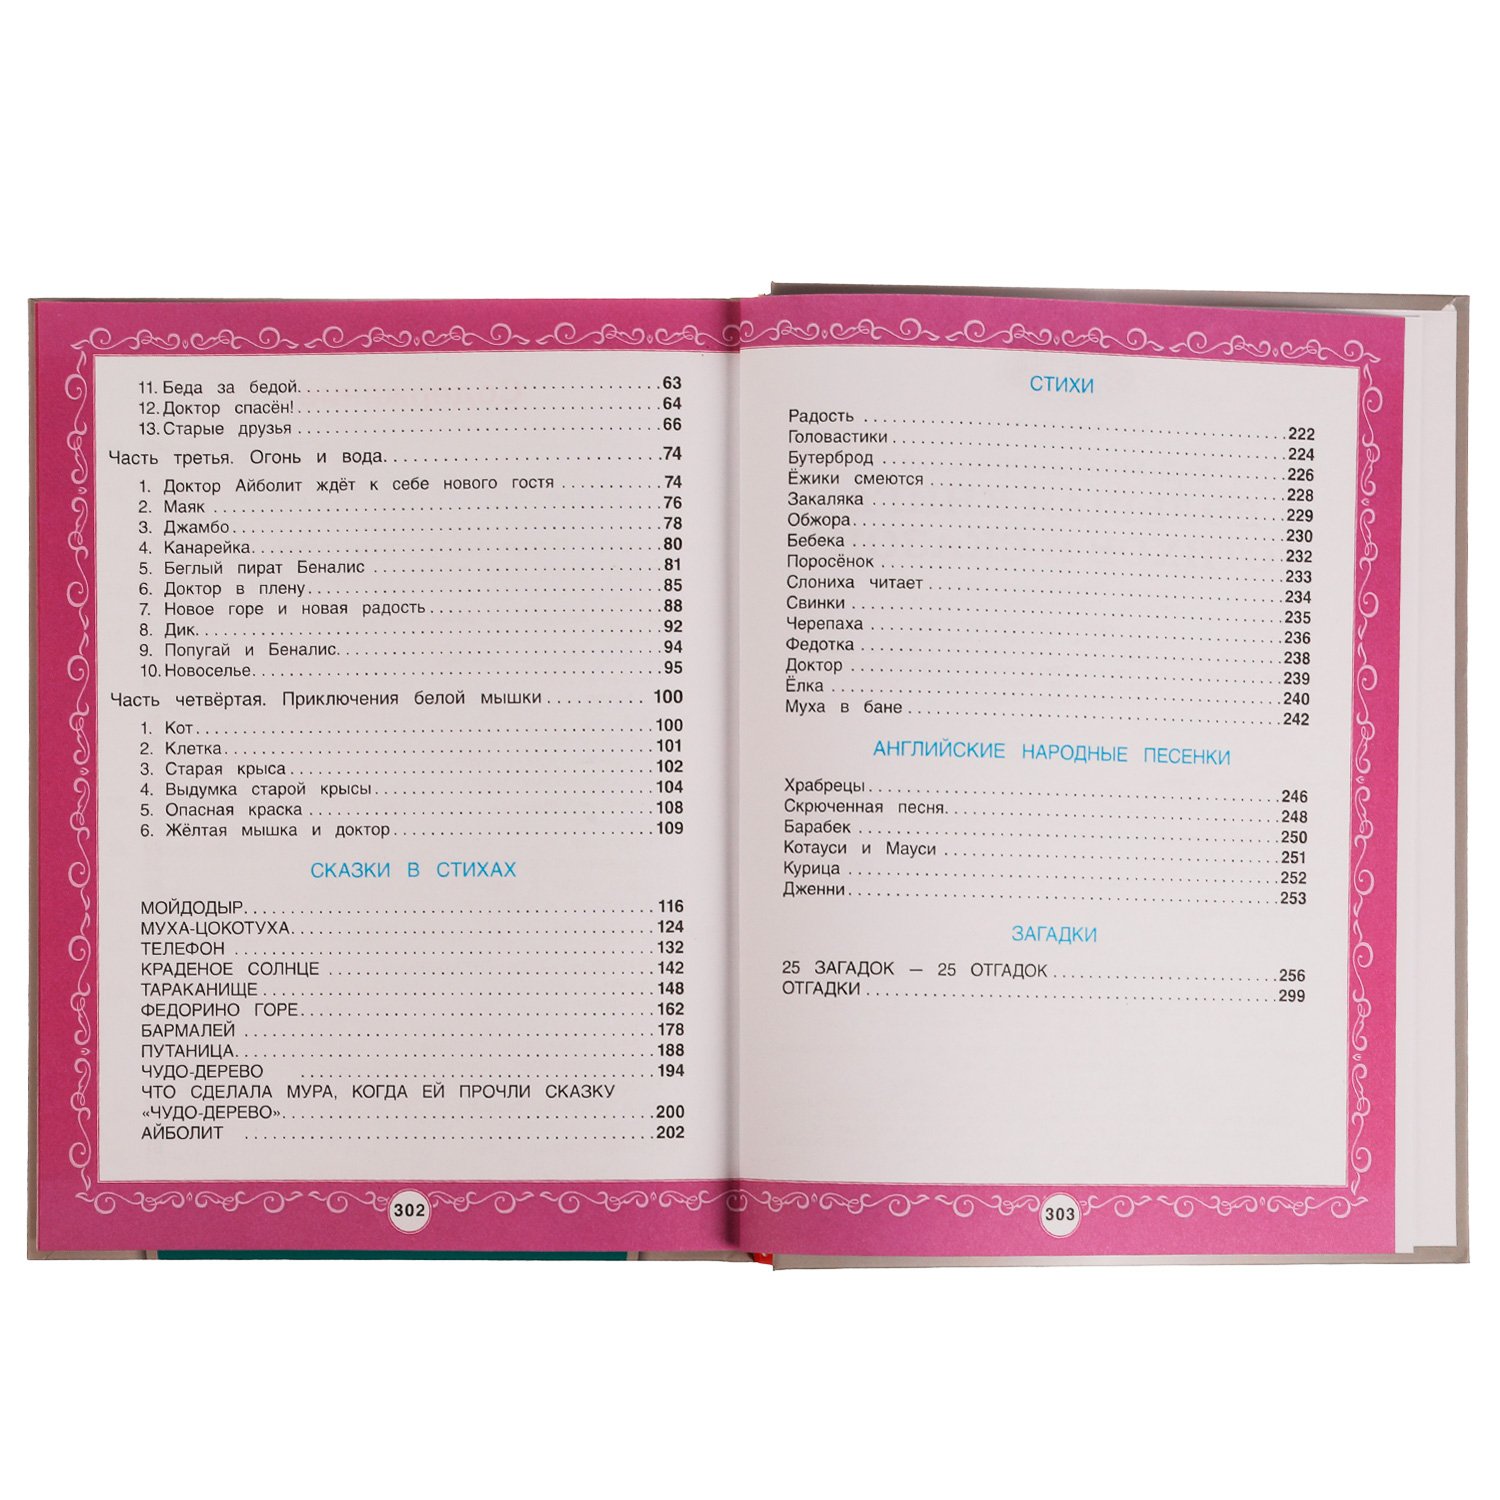 11. Беда за бедой. 63
12. Доктор спасён! 64
13. Старые друзья 66
Часть третья. Огонь и вода. 74
1. Доктор Айболит ждёт к себе нового гостя 74
2. Маяк 76
3. Джамбо 78
4. Канарейка 80
5. Беглый пират Беналис 81
6. Доктор в плену 85
7. Новое горе и новая радость 88
8. Дик. 92
9. Попугай и Беналис. 94
10. Новоселье. 95
Часть четвёртая. Приключения белой мышки 100
1. Кот 100
2. Клетка 101
3. Старая крыса 102
4. Выдумка старой крысы 104
5. Опасная краска 108
6. Жёлтая мышка и доктор 109
СКАЗКИ В СТИХАХ
МОЙДОДЫР. 116
МУХА-ЦОКОТУХА. 124
ТЕЛЕФОН 132
КРАДЕНОЕ СОЛНЦЕ 142
ТАРАКАНИЩЕ 148
ФЕДОРИНО ГОРЕ 162
БАРМАЛЕЙ 178
ПУТАНИЦА. 188
ЧУДО-ДЕРЕВО 194
ЧТО СДЕЛАЛА МУРА, КОГДА ЕЙ ПРОЧЛИ СКАЗКУ
«ЧУДО-ДЕРЕВО» 200
АЙБОЛИТ 202
302
СТИХИ
Радость 222
Головастики 224
Бутерброд 226
Ёжики смеются 228
Закаляка 229
Обжора 230
Бебека 232
Поросёнок 233
Слониха читает 234
Свинки 235
Черепаха 236
Федотка 238
Доктор 239
Ёлка 240
Муха в бане 242
АНГЛИЙСКИЕ НАРОДНЫЕ ПЕСЕНКИ
Храбрецы 246
Скрюченная песня. 248
Барабек 250
Котауси и Мауси 251
Курица 252
Дженни 253
ЗАГАДКИ
25 ЗАГАДОК — 25 ОТГАДОК 256
ОТГАДКИ 299
303